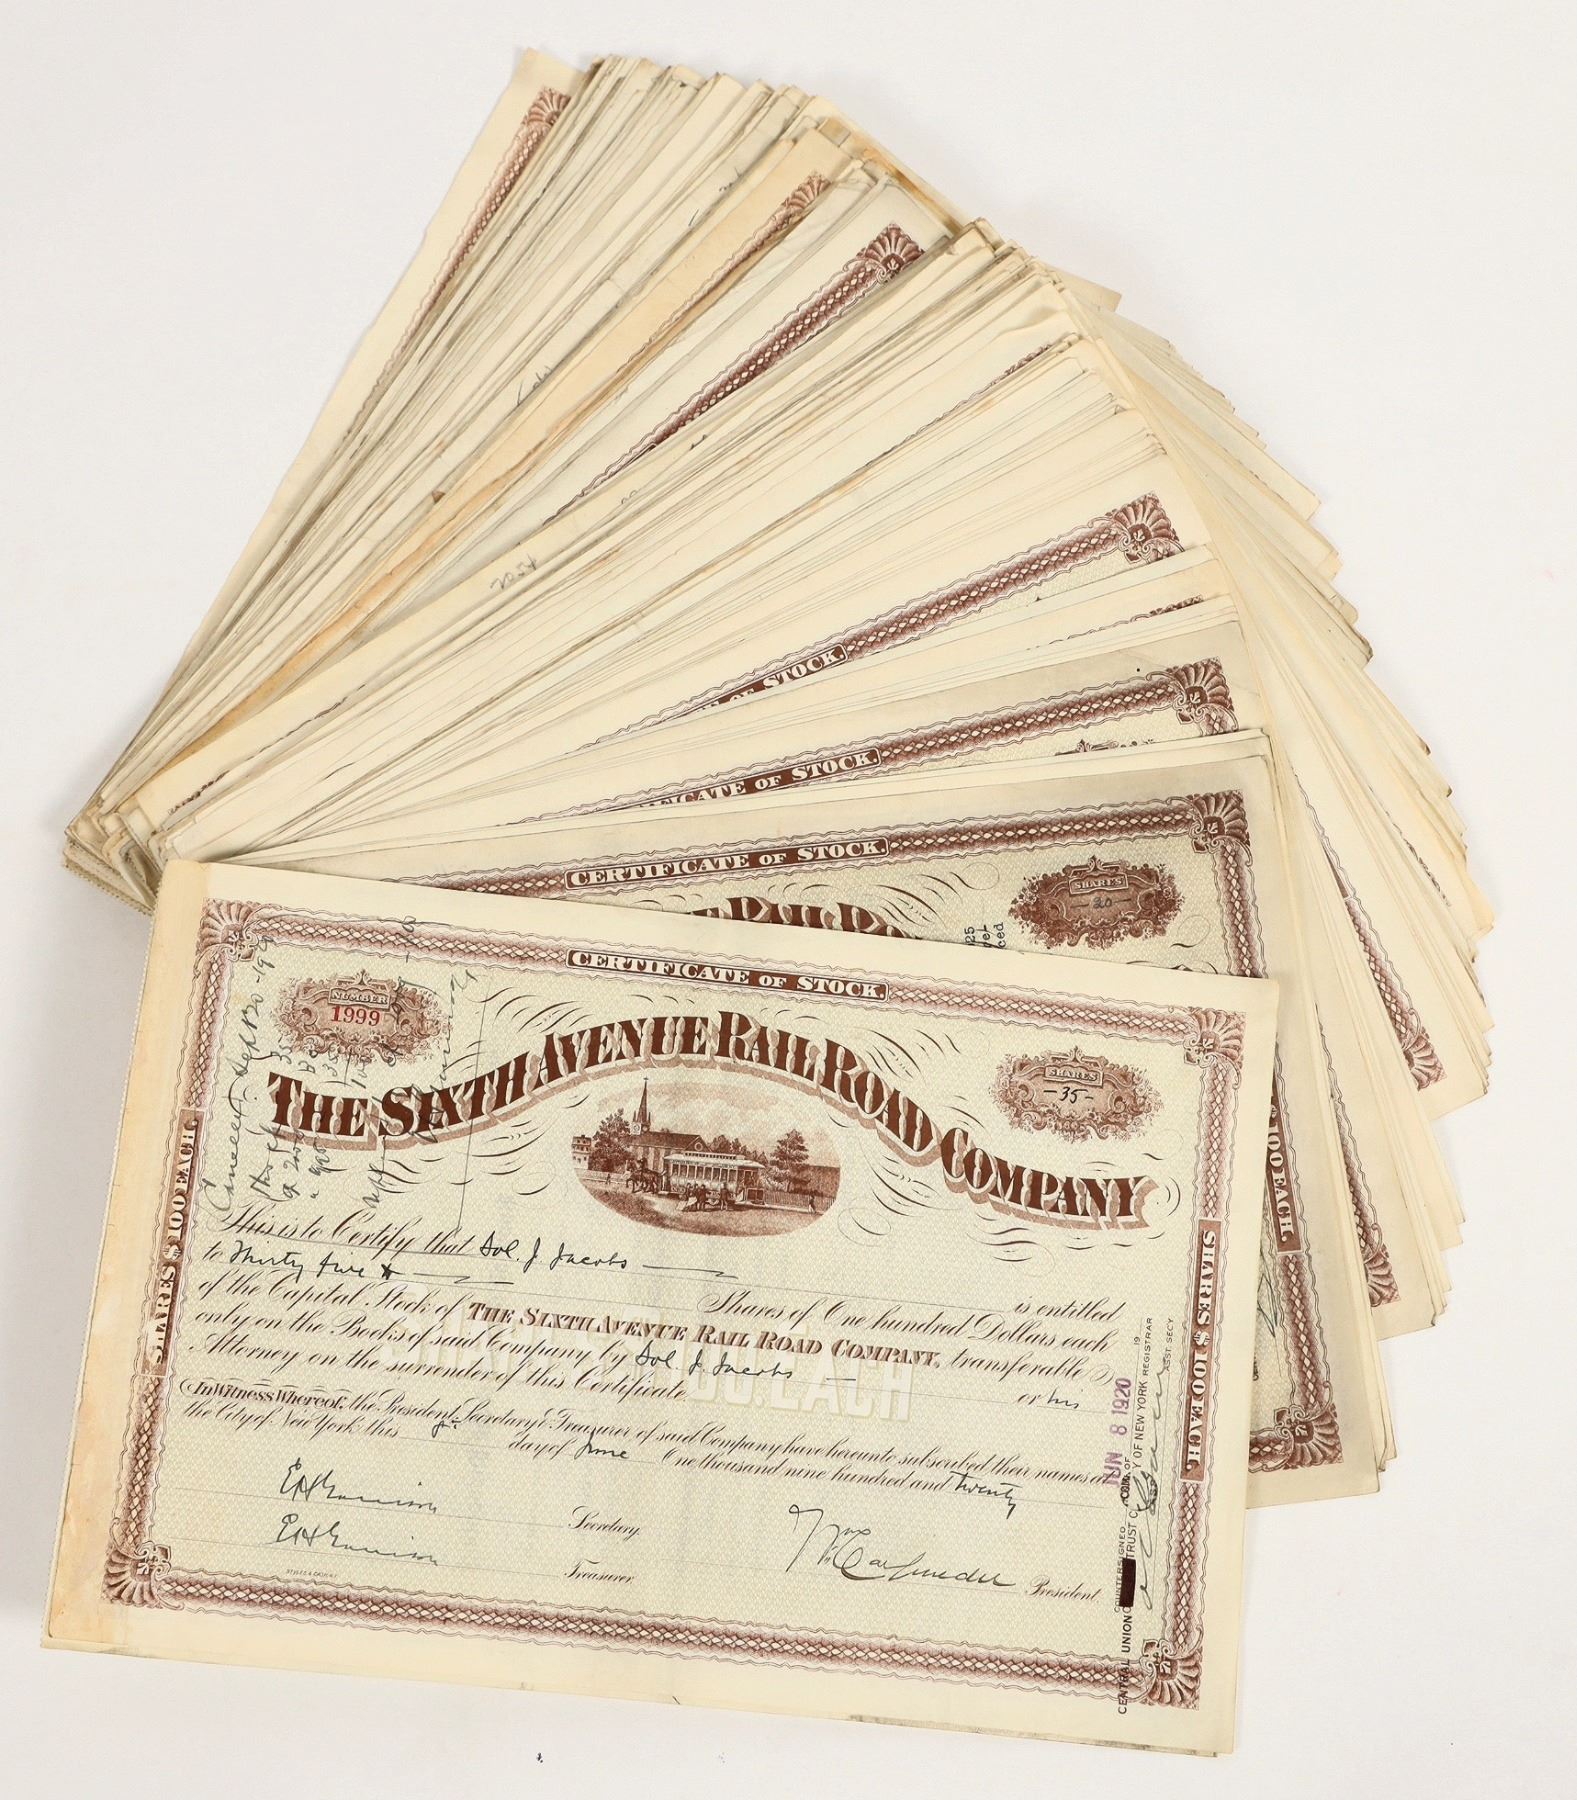 2054
CERTIFICATE OF STOCK.
CERTIFICATE OF STOCK.
SHARES
-20-
CERTIFICATE OF STOCK.
NUMBER
1999
SHARES
-35-
THE SIXTH AVENUE RAIL ROAD COMPANY
This is to Certify that Sol. J. Jacobs
is entitled
to Thirty five
Shares of One hundred Dollars each
of the Capital Stock of THE SIXTH AVENUE RAIL ROAD COMPANY, transferable
only on the Books of said Company by Sol. J. Jacobs or his
Attorney on the surrender of this Certificate.
In Witness Whereof, the President, Secretary & Treasurer of said Company have hereunto subscribed their names at
the City of New York this day of June One thousand nine hundred and twenty
Secretary.
Treasurer
President.
SHARES $100 EACH.
SHARES $100 EACH.
$100 EACH.
JUN 8 1920
COUNTERSIGNED
CENTRAL UNION TRUST CO. OF NEW YORK REGISTRAR
ASST. SECY